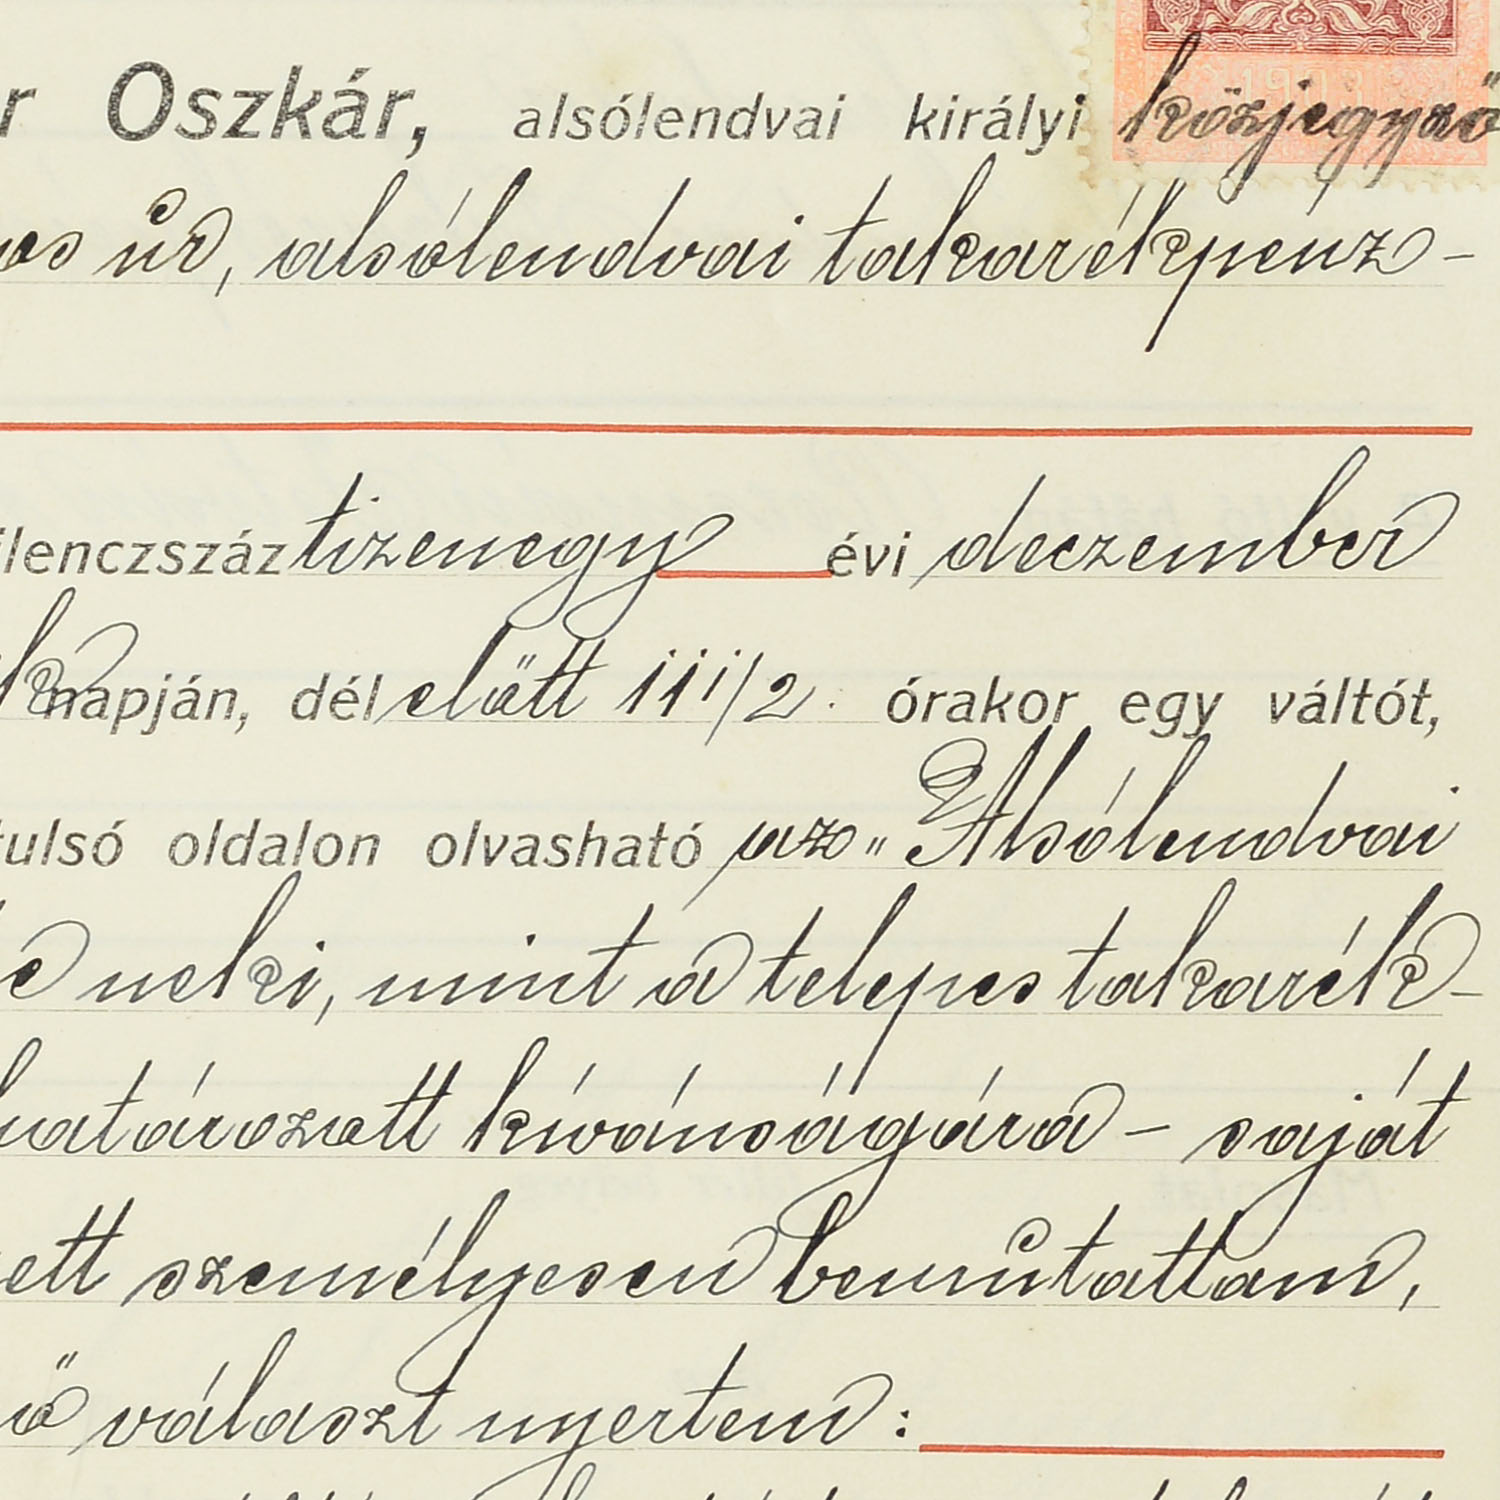 r Oszkár, alsólendvai királyi közjegyző
os úr, alsólendvai takarékpénz-
ilenczszáz tizenegy évi deczember
k napján, dél előtt 11 1/2 órakor egy váltót,
tulsó oldalon olvasható az „Alsólendvai
e neki, mint a telepes takarék-
határozott kívánságára - saját
ett személyesen bemutattam,
ő választ nyertem: